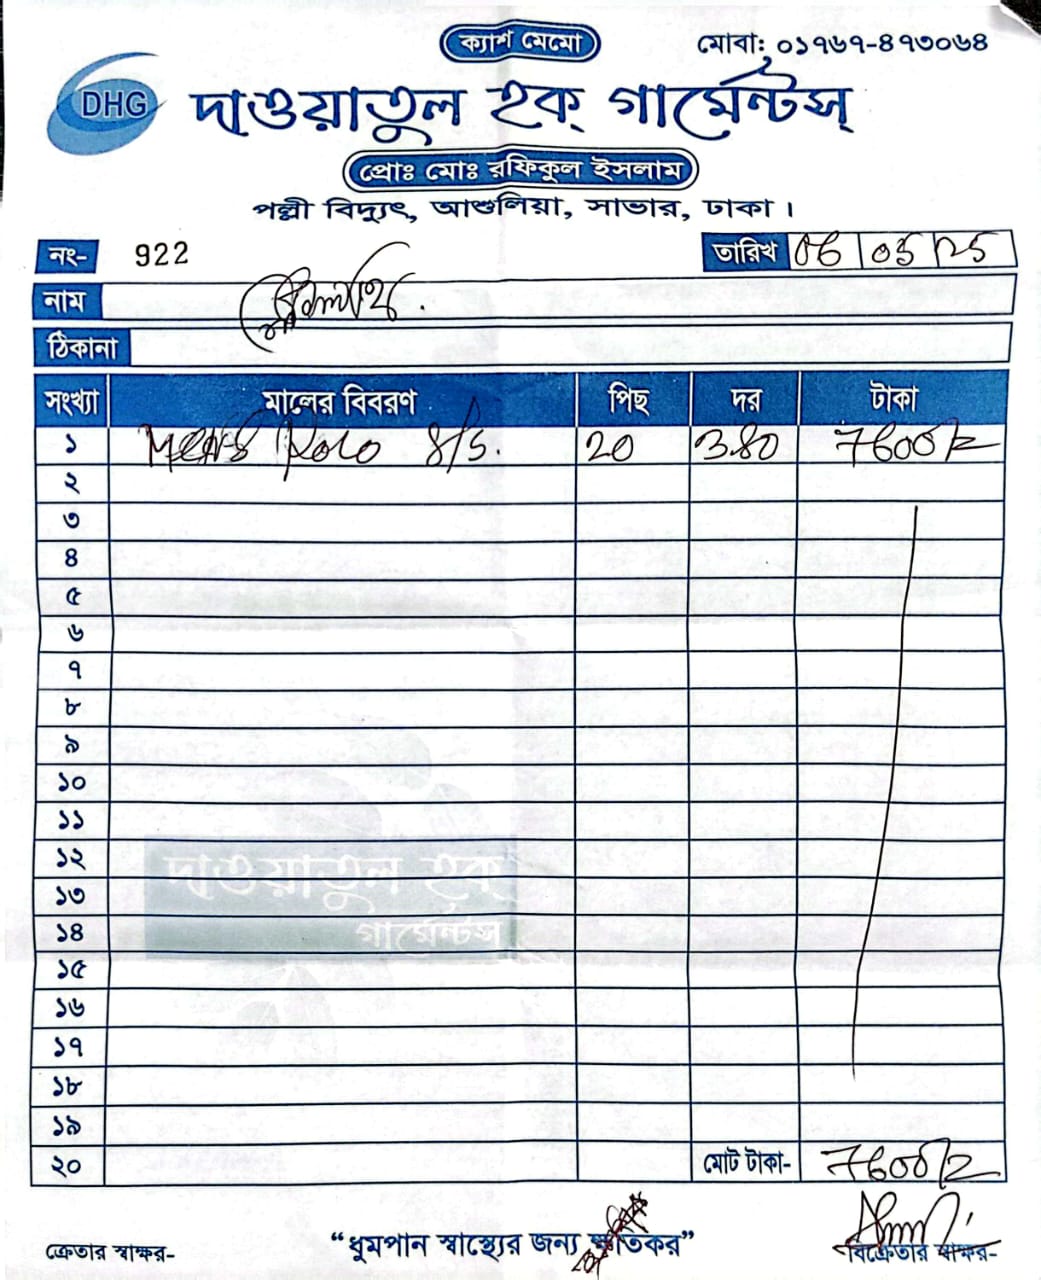 ক্যাশ মেমো
মোবা: ০১৭৬৭-৪৭৩০৬৪
DHG
দাওয়াতুল হক্ গার্মেন্টস্
প্রোঃ মোঃ রফিকুল ইসলাম
পল্লী বিদ্যুৎ, আশুলিয়া, সাভার, ঢাকা।
নং- 922 তারিখ 06 05 25
নাম
ঠিকানা
সংখ্যা মালের বিবরণ পিছ দর টাকা
১ Mens Polo S/S. 20 380 7600/=
২
৩
৪
৫
৬
৭
৮
৯
১০
১১
১২
১৩
১৪
১৫
১৬
১৭
১৮
১৯
২০ মোট টাকা- 7600/=
দাওয়াতুল হক্
গার্মেন্টস্
ক্রেতার স্বাক্ষর- “ধুমপান স্বাস্থ্যের জন্য ক্ষতিকর” বিক্রেতার স্বাক্ষর-